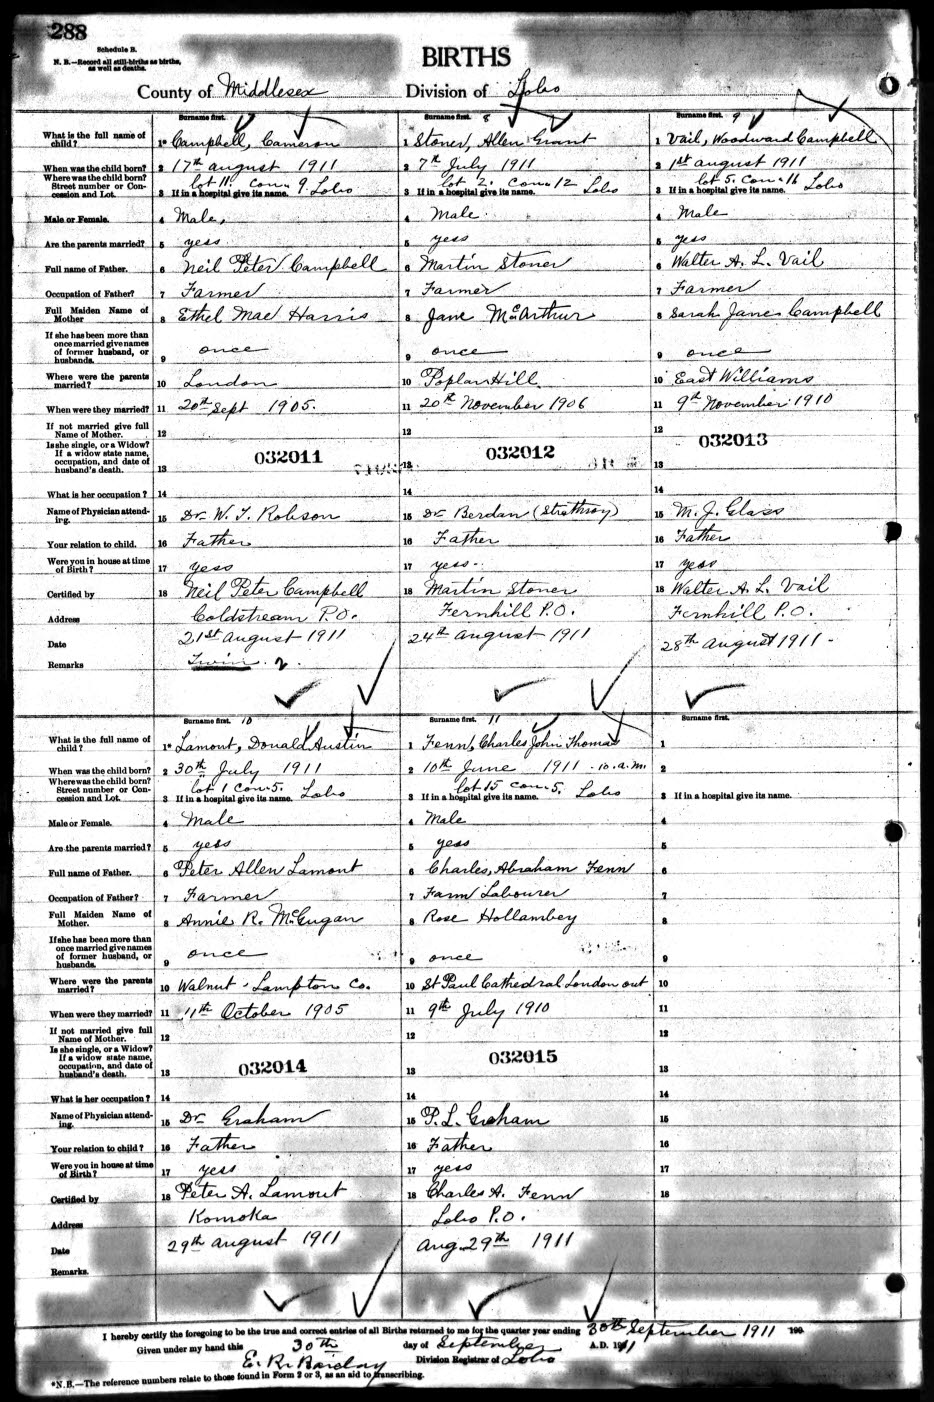 288
Schedule B.
N. B.—Record all still-births as births, as well as deaths.
BIRTHS
County of Middlesex Division of Lobo
Surname first. Surname first. 8 Surname first. 9
What is the full name of child? 1* Campbell, Cameron 1 Stoner, Allen Grant 1 Vail, Woodward Campbell
When was the child born? 2 17th august 1911 2 7th July 1911 2 1st august 1911
Where was the child born? Street number or Concession and Lot. lot 11. con. 9. Lobo lot 2. con. 12 Lobo lot 5. con. 16 Lobo
3 If in a hospital give its name. 3 If in a hospital give its name. 3 If in a hospital give its name.
Male or Female. 4 Male, 4 Male 4 Male
Are the parents married? 5 yess 5 yess 5 yess
Full name of Father. 6 Neil Peter Campbell 6 Martin Stoner 6 Walter A. L. Vail
Occupation of Father? 7 Farmer 7 Farmer 7 Farmer
Full Maiden Name of Mother 8 Ethel Mae Harris 8 Jane McArthur 8 Sarah Jane Campbell
If she has been more than once married give names of former husband, or husbands. 9 once 9 once 9 once
Where were the parents married? 10 London 10 Poplar Hill 10 East Williams
When were they married? 11 20th Sept 1905. 11 20th November 1906 11 9th November 1910
If not married give full Name of Mother. 12 12 12
Is she single, or a Widow? If a widow state name, occupation, and date of husband's death. 13 032011 13 032012 13 032013
What is her occupation? 14 14 14
Name of Physician attending. 15 Dr W. J. Robson 15 Dr Berdan (Strathroy) 15 M. J. Glass
Your relation to child. 16 Father 16 Father 16 Father
Were you in house at time of Birth? 17 yess 17 yess 17 yess
Certified by 18 Neil Peter Campbell 18 Martin Stoner 18 Walter A. L. Vail
Address Coldstream P.O. Fernhill P.O. Fernhill P.O.
Date 21st August 1911 24th august 1911 28th august 1911
Remarks Twin 2.
Surname first. 10 Surname first. 11 Surname first.
What is the full name of child? 1* Lamont, Donald Austin 1 Fenn, Charles John Thomas 1
When was the child born? 2 30th July 1911 2 10th June 1911 . 10. a.m. 2
Where was the child born? Street number or Concession and Lot. lot 1 con. 5. Lobo lot 15 con. 5. Lobo
3 If in a hospital give its name. 3 If in a hospital give its name. 3 If in a hospital give its name.
Male or Female. 4 Male 4 Male 4
Are the parents married? 5 yess 5 yess 5
Full name of Father. 6 Peter Allen Lamont 6 Charles, Abraham Fenn 6
Occupation of Father? 7 Farmer 7 Farm Labourer 7
Full Maiden Name of Mother. 8 Annie R. McGugan 8 Rose Hollambey 8
If she has been more than once married give names of former husband, or husbands. 9 once 9 once 9
Where were the parents married? 10 Walnut . Lampton Co. 10 St Paul Cathedral London out 10
When were they married? 11 11th October 1905 11 9th July 1910 11
If not married give full Name of Mother. 12 12 12
Is she single, or a Widow? If a widow state name, occupation, and date of husband's death. 13 032014 13 032015 13
What is her occupation? 14 14 14
Name of Physician attending. 15 Dr Graham 15 P. L. Graham 15
Your relation to child? 16 Father 16 Father 16
Were you in house at time of Birth? 17 yess 17 yess 17
Certified by 18 Peter A. Lamont 18 Charles A. Fenn 18
Address Komoka Lobo P.O.
Date 29th august 1911 Aug. 29th 1911
Remarks.
I hereby certify the foregoing to be the true and correct entries of all Births returned to me for the quarter year ending 30th September 1911 190
Given under my hand this 30th day of September A.D. 1911
E. R. Barclay Division Registrar of Lobo
*N.B.—The reference numbers relate to those found in Form 2 or 3, as an aid to transcribing.